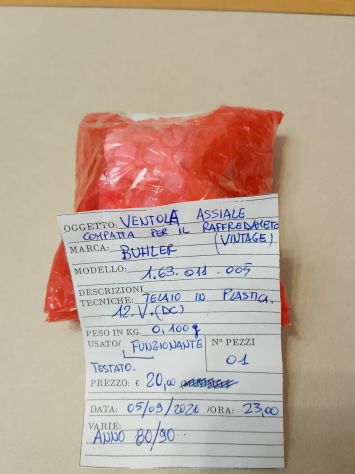 OGGETTO: VENTOLA ASSIALE
COMPATTA PER IL RAFFREDAMETO
MARCA: BUHLER (VINTAGE)
MODELLO: 1.63.011.005
DESCRIZIONI
TECNICHE: TELAIO IN PLASTICA.
12.V.(DC)
PESO IN KG. 0,100g
USATO/ FUNZIONANTE N° PEZZI
TESTATO. 01
PREZZO: € 20,00
DATA: 05/09/2020 /ORA: 23,00
VARIE:
ANNO 80/90.